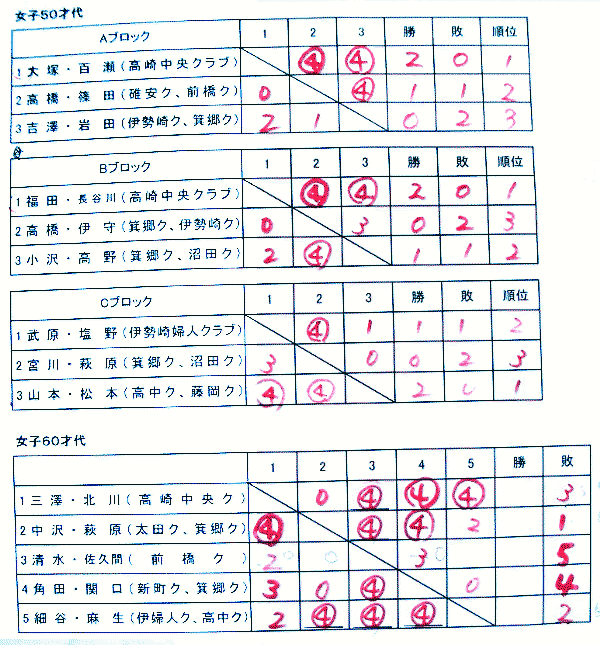 女子50才代
Aブロック 1 2 3 勝 敗 順位
1 大塚・百瀬(高崎中央クラブ) ④ ④ 2 0 1
2 高橋・篠田(碓安ク、前橋ク) 0 ④ 1 1 2
3 吉澤・岩田(伊勢崎ク、箕郷ク) 2 1 0 2 3
Bブロック 1 2 3 勝 敗 順位
1 福田・長谷川(高崎中央クラブ) ④ ④ 2 0 1
2 高橋・伊守(箕郷ク、伊勢崎ク) 0 3 0 2 3
3 小沢・高野(箕郷ク、沼田ク) 2 ④ 1 1 2
Cブロック 1 2 3 勝 敗 順位
1 武原・塩野(伊勢崎婦人クラブ) ④ 1 1 1 2
2 宮川・萩原(箕郷ク、沼田ク) 3 0 0 2 3
3 山本・松本(高中ク、藤岡ク) ④ ④ 2 0 1
女子60才代
1 2 3 4 5 勝 敗
1 三澤・北川(高崎中央ク) 0 ④ ④ ④ 3
2 中沢・萩原(太田ク、箕郷ク) ④ ④ ④ 2 1
3 清水・佐久間(前橋ク) 2 0 3 0 5
4 角田・関口(新町ク、箕郷ク) 3 0 ④ 0 4
5 細谷・麻生(伊婦人ク、高中ク) 2 ④ ④ ④ 2